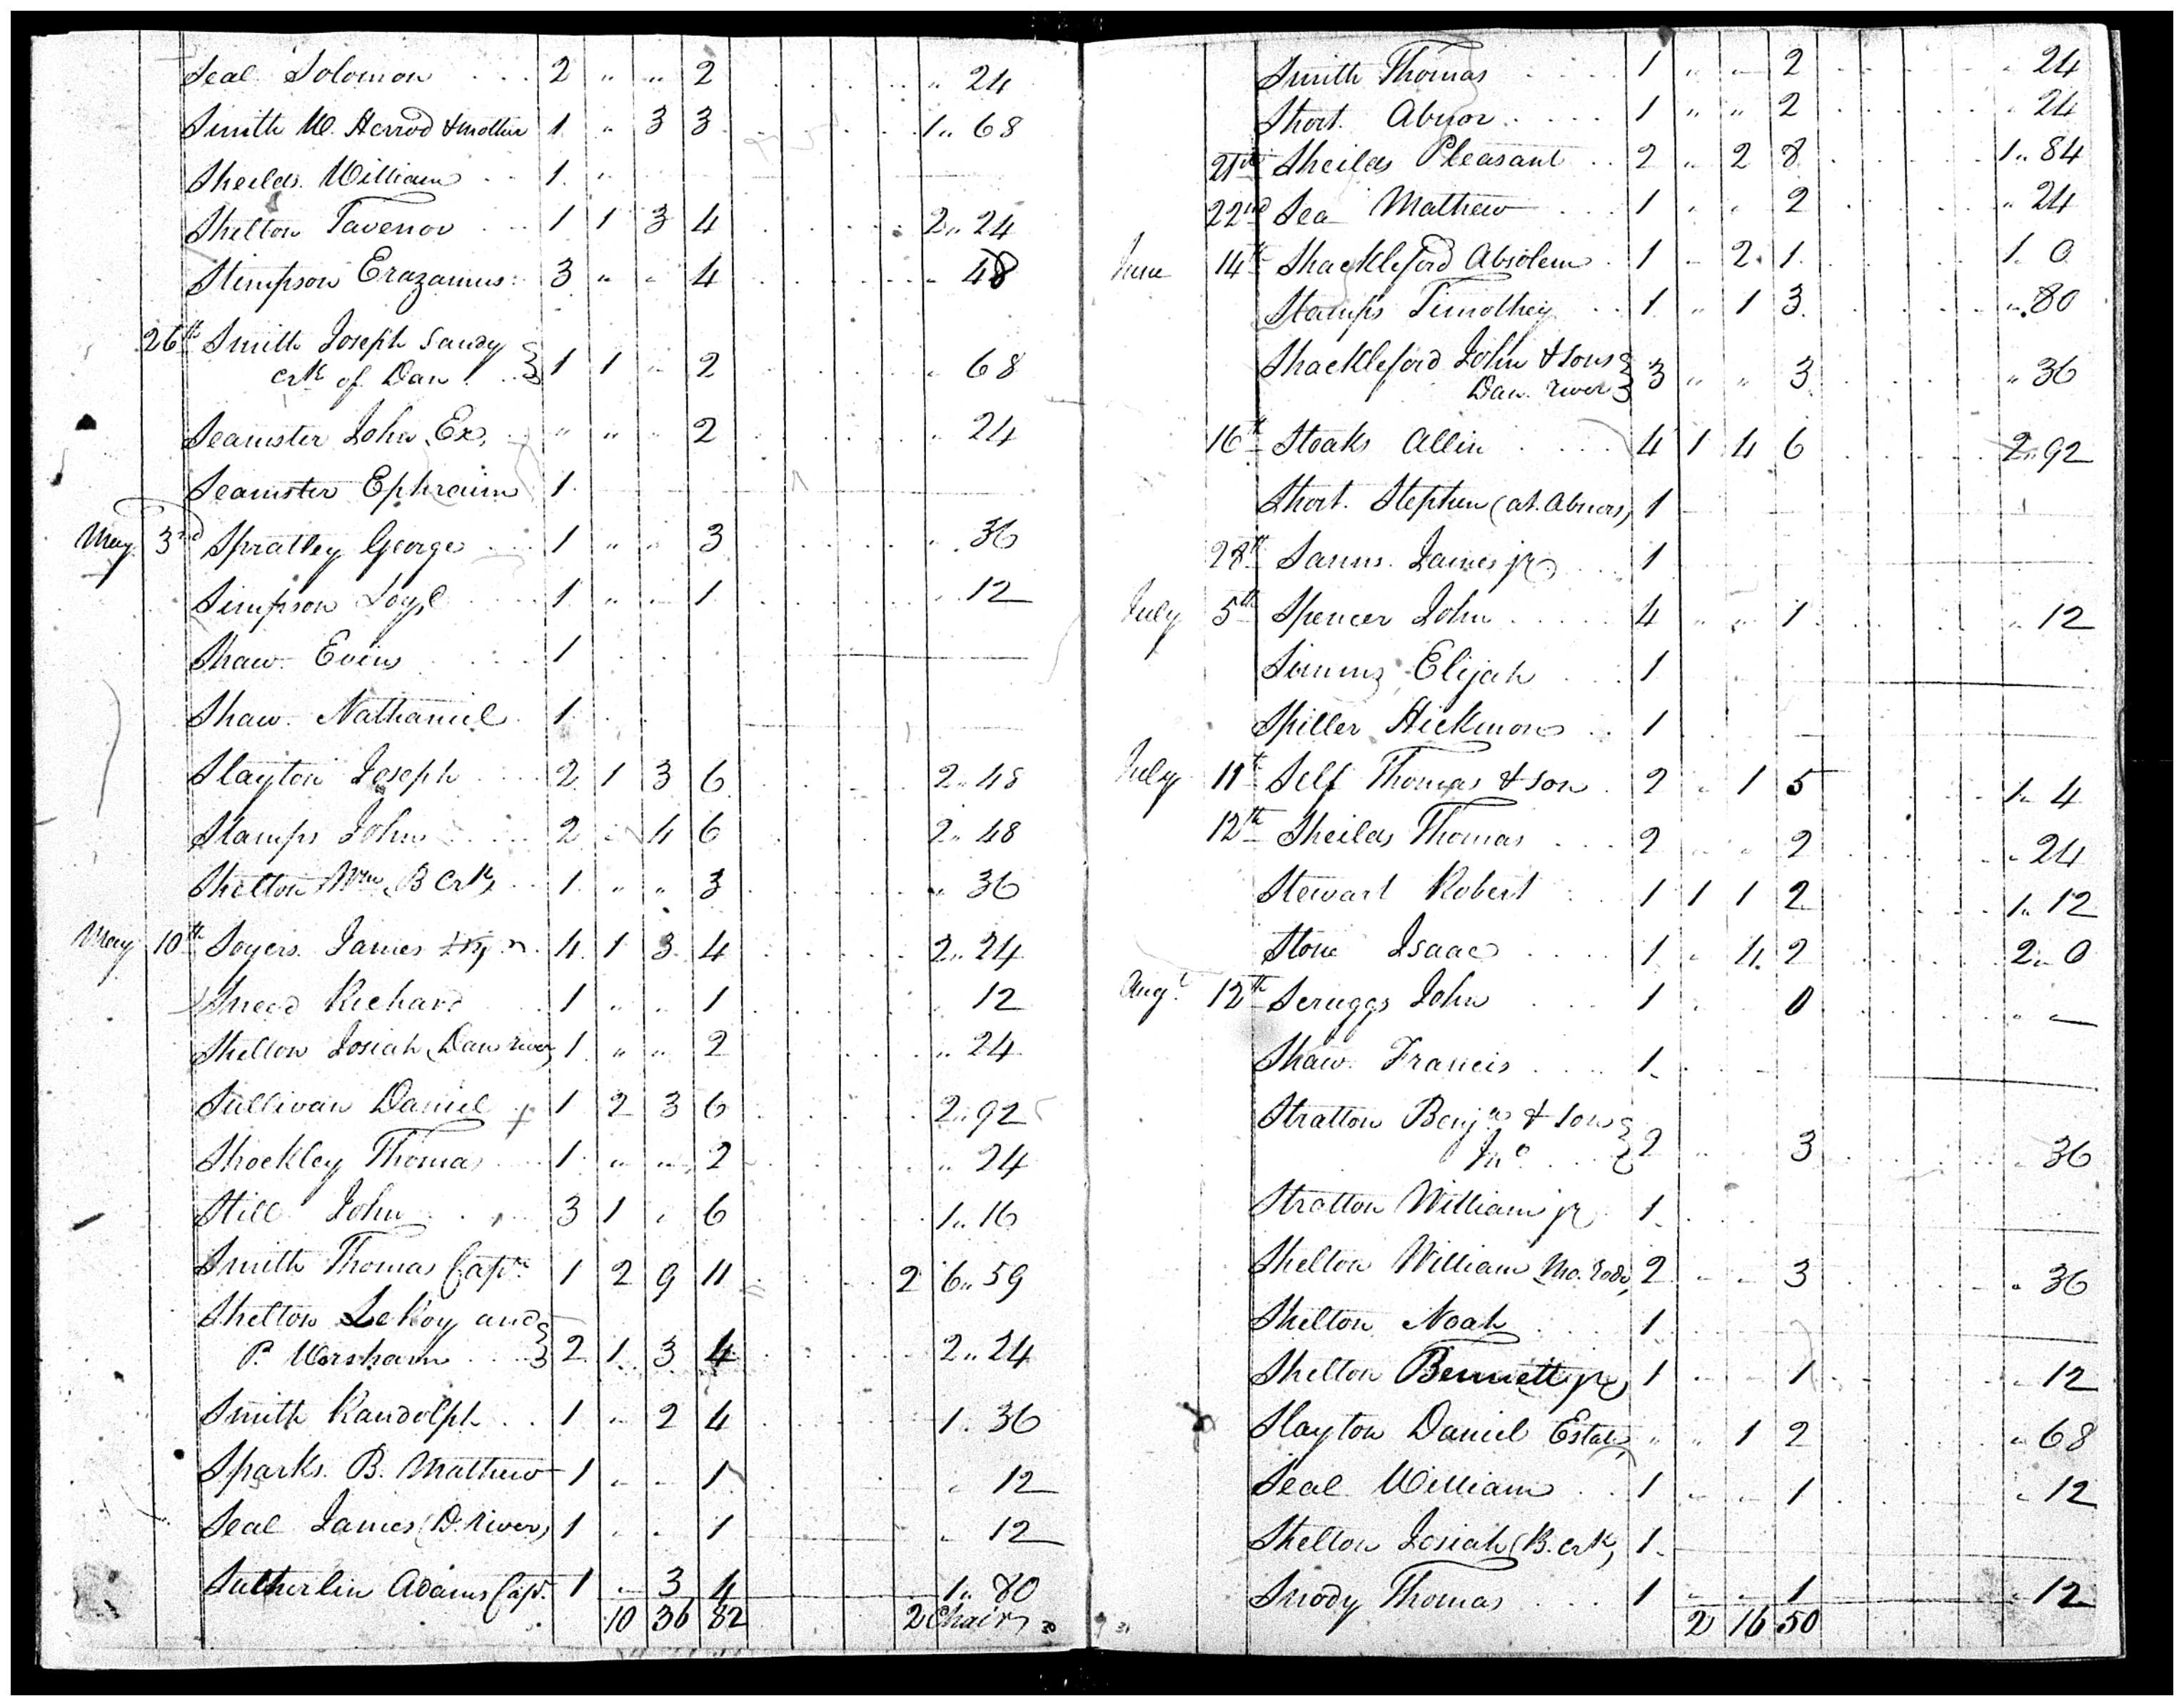 Seal Solomon . . . 2 " " 2 " 24
Smith W. Herrod & mother 1 " 3 3 1 " 68
Sheilds William . . 1 "
Shelton Tavenor . . 1 1 3 4 2 " 24
Stimpson Erazamus 3 " " 4 " 48
26th Smith Joseph Sandy
Crk of Dan . . 1 1 " 2 " 68
Seamster John Ex, . . " " " 2 " 24
Seamster Ephraim 1
May 3rd Spratley George . . 1 " " 3 " 36
Simpson Loyd . . . 1 " " 1 " 12
Shaw Evins . . . 1
Shaw Nathaniel . 1
Slayton Joseph . . . 2 1 3 6 2 " 48
Stamps John . . . 2 " 4 6 2 " 48
Shelton Wm (B Crk) . . 1 " " 3 " 36
May 10th Soyers James 4 1 3 4 2 " 24
Sneed Richard . . 1 " " 1 " 12
Shelton Josiah (Dan river) 1 " " 2 " 24
Sullivan Daniel 1 2 3 6 2 " 92
Shockley Thomas . . 1 " " 2 " 24
Still John . . . 3 1 " 6 1 " 16
Smith Thomas Capt. 1 2 9 11 2 6 " 59
Shelton LeRoy and
P. Worsham . . . 2 1 3 4 2 " 24
Smith Randolph . . 1 " 2 4 1 " 36
Sparks B. Mathew 1 " " 1 " 12
Seal James (D. River) 1 " " 1 " 12
Sutherlin Adams Capt. 1 " 3 4 1 " 80
10 36 82 2 Chairs
Smith Thomas . . . . 1 " " 2 " 24
Short Abnor . . . . 1 " " 2 " 24
21st Sheilds Pleasant . . 2 " 2 8 1 " 84
22nd Sea Mathew . . . 1 " " 2 " 24
June 14th Shackleford Absolem . 1 " 2 1 1 " 0
Stamps Timothey . . 1 " 1 3 " 80
Shackleford John & sons
Dan river 3 " " 3 " 36
16th Stoaks Allin . . . . 4 1 4 6 2 " 92
Short Stephen (at Abners) 1
28th Sams James jr . . 1
July 5th Spencer John . . . . . 4 " " 1 " 12
Simms Elijah . . . 1
Spiller Hickmon . . 1
July 11th Self Thomas & son . 2 " 1 5 1 " 4
12th Sheilds Thomas . . . 2 " " 2 " 24
Stewart Robert . . 1 1 1 2 1 " 12
Stone Isaac . . . . 1 " 4 2 2 " 0
Augt. 12th Scruggs John . . . 1 " 0 " —
Shaw Francis . . . . 1
Stratton Benja & son
Jno . . . 2 " 3 " 36
Stratton William jr . 1
Shelton William Mo. Road, 2 " " 3 " 36
Shelton Noah . . . 1
Shelton Bennett jr, 1 " " 1 " 12
Slayton Daniel Estate " " 1 2 " 68
Seal William . . 1 " " 1 " 12
Shelton Josiah (B. Crk, 1
Snody Thomas . . . 1 " " 1 " 12
2 16 50